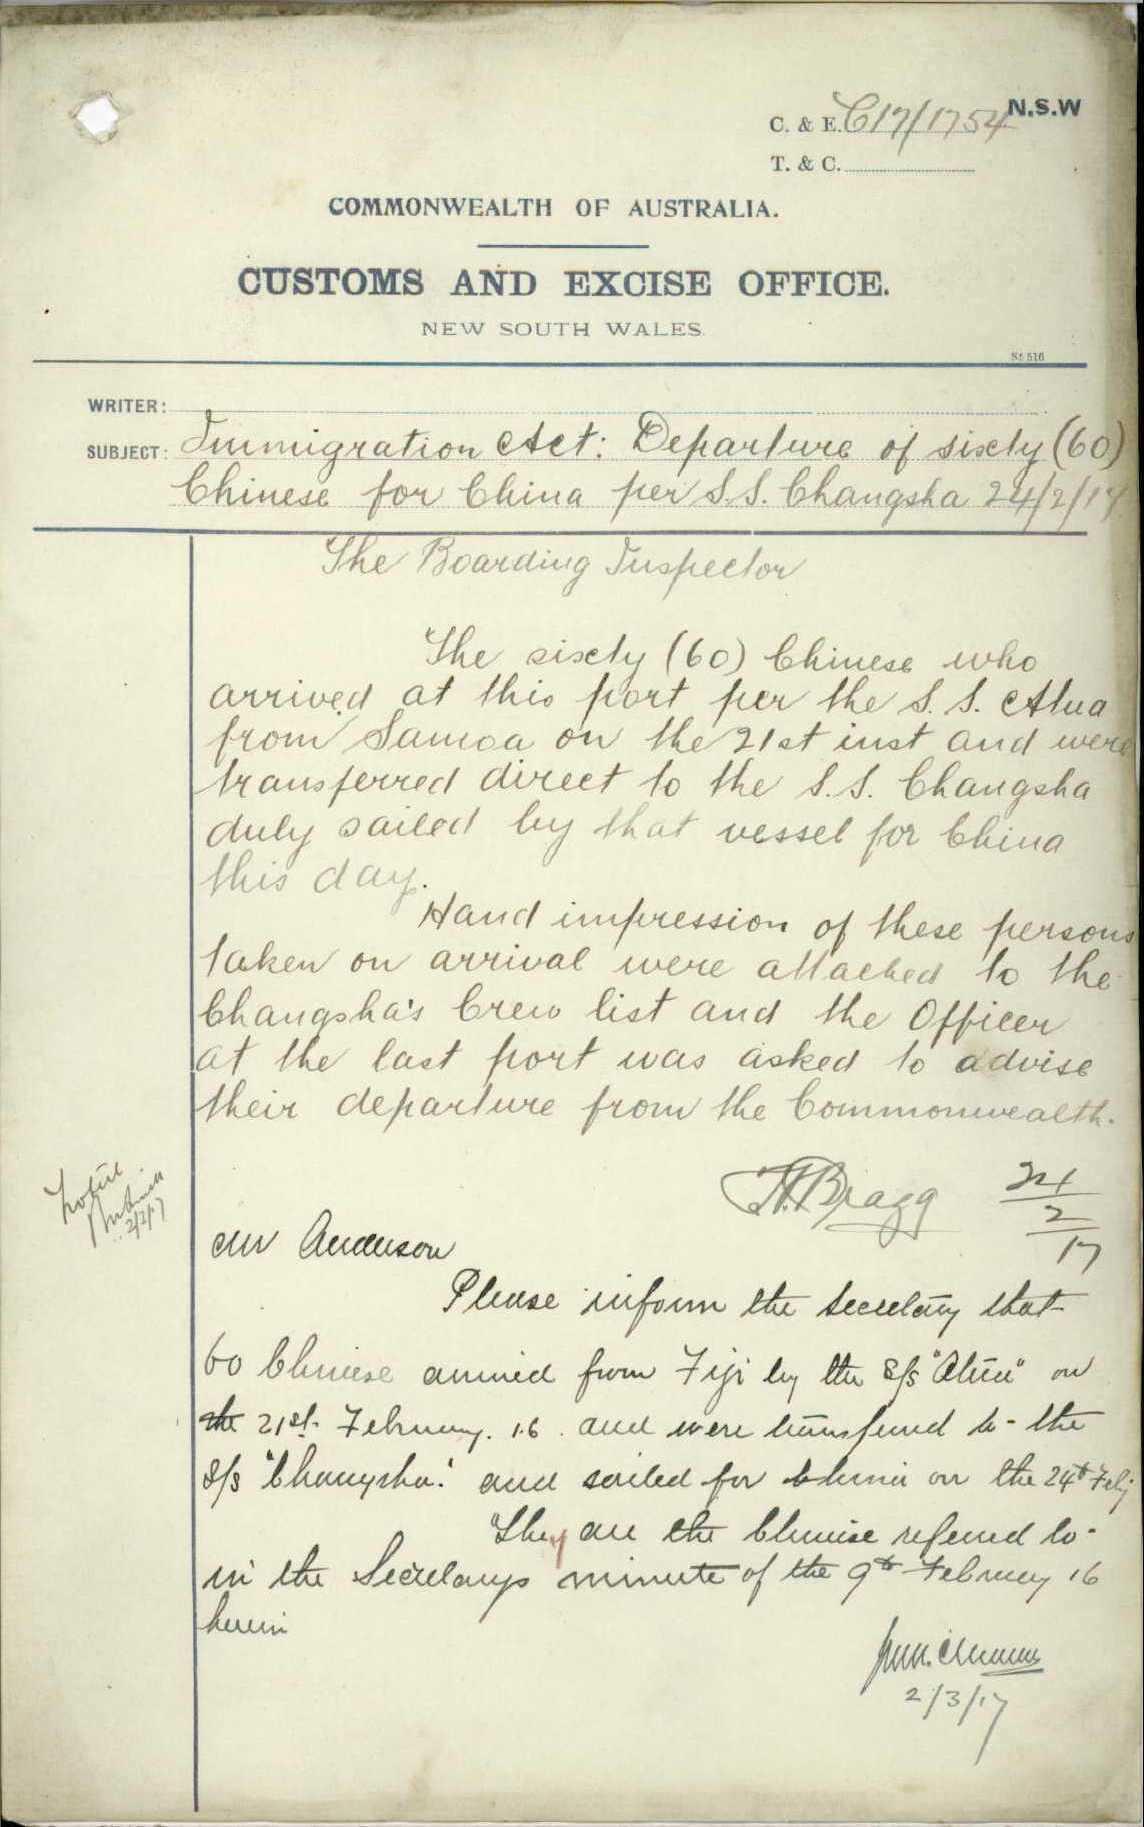 N.S.W
C. & E. C17/1754
T. & C.
COMMONWEALTH OF AUSTRALIA.
CUSTOMS AND EXCISE OFFICE.
NEW SOUTH WALES.
St 516
WRITER:
SUBJECT: Immigration Act: Departure of sixty (60)
Chinese for China per S.S. Changsha 24/2/17
The Boarding Inspector
The sixty (60) Chinese who
arrived at this port per the S.S. Atua
from Samoa on the 21st inst and were
transferred direct to the S.S. Changsha
duly sailed by that vessel for China
this day.
Hand impression of these persons
taken on arrival were attached to the
Changsha's Crew list and the Officer
at the last port was asked to advise
their departure from the Commonwealth.
Bragg 24/2/17
Mr Anderson
Please inform the Secretary that
60 Chinese arrived from Fiji by the s/s "Atua" on
the 21st February. 16. and were transferred to the
s/s "Changsha." and sailed for China on the 24th Feby
They are the Chinese referred to
in the Secretarys minute of the 9th February 16
herein
2/3/17